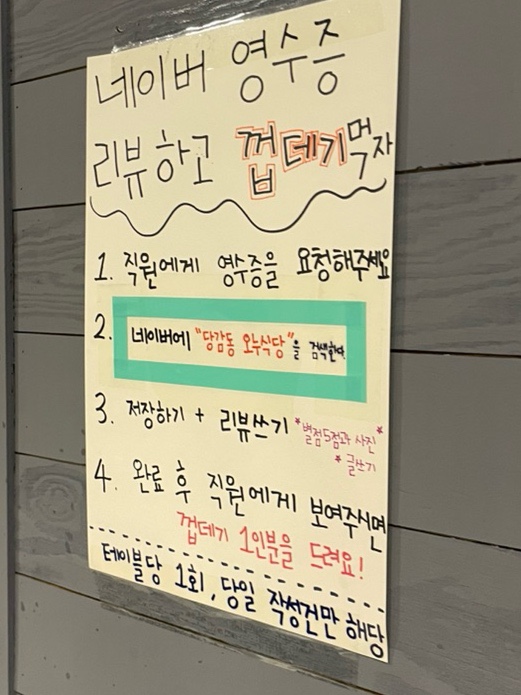 네이버 영수증
리뷰하고 껍데기먹자
1. 직원에게 영수증을 요청해주세요
2. 네이버에 "당감동 오누식당"을 검색한다.
3. 저장하기 + 리뷰쓰기 *별점5점과 사진*
*글쓰기
4. 완료 후 직원에게 보여주시면
껍데기 1인분을 드려요!
테이블당 1회, 당일 작성건만 해당